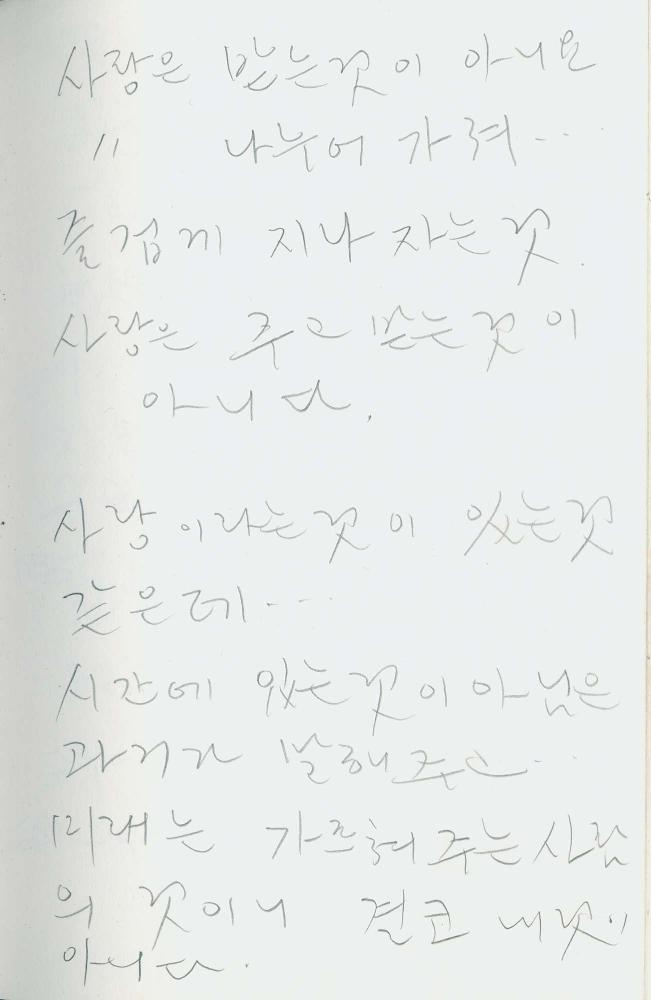 사랑은 받는것이 아니요
〃 나누어 가져...
즐겁게 지나 자는것.
사랑은 주고 받는것이
아니다.
사랑이라는것이 있는것
같은데...
시간에 있는것이아님은
과거가 말해주고...
미래는 가르쳐주는사람
의 것이니 결코 내것이
아니다.